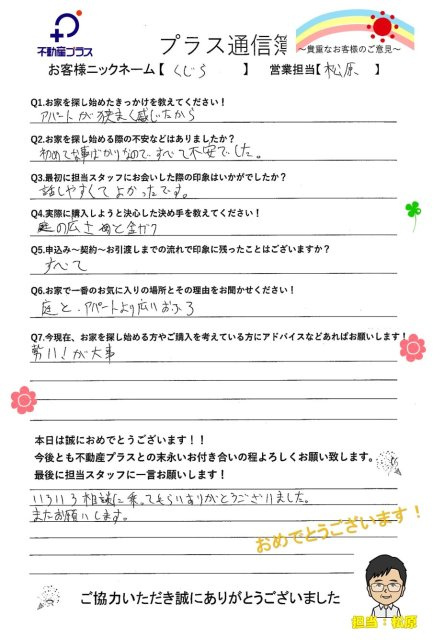 不動産プラス
プラス通信簿
～貴重なお客様のご意見～
お客様ニックネーム【 くじら 】 営業担当【 松原 】
Q1.お家を探し始めたきっかけを教えてください！
アパートが狭く感じたから
Q2.お家を探し始める際の不安などはありましたか？
初めてな事ばかりなので、すべて不安でした。
Q3.最初に担当スタッフにお会いした際の印象はいかがでしたか？
話しやすくてよかったです。
Q4.実際に購入しようと決心した決め手を教えてください！
庭の広さ お金
Q5.申込み～契約～お引渡しまでの流れで印象に残ったことはございますか？
すべて
Q6.お家で一番のお気に入りの場所とその理由をお聞かせください！
庭と、アパートより広いおふろ
Q7.今現在、お家を探し始める方やご購入を考えている方にアドバイスなどあればお願いします！
勢い！が大事
本日は誠におめでとうございます！！
今後とも不動産プラスとの末永いお付き合いの程よろしくお願い致します。
最後に担当スタッフに一言お願いします！
いろいろ相談に乗ってもらいありがとうございました。
またお願いします。
おめでとうございます！
ご協力いただき誠にありがとうございました
担当：松原